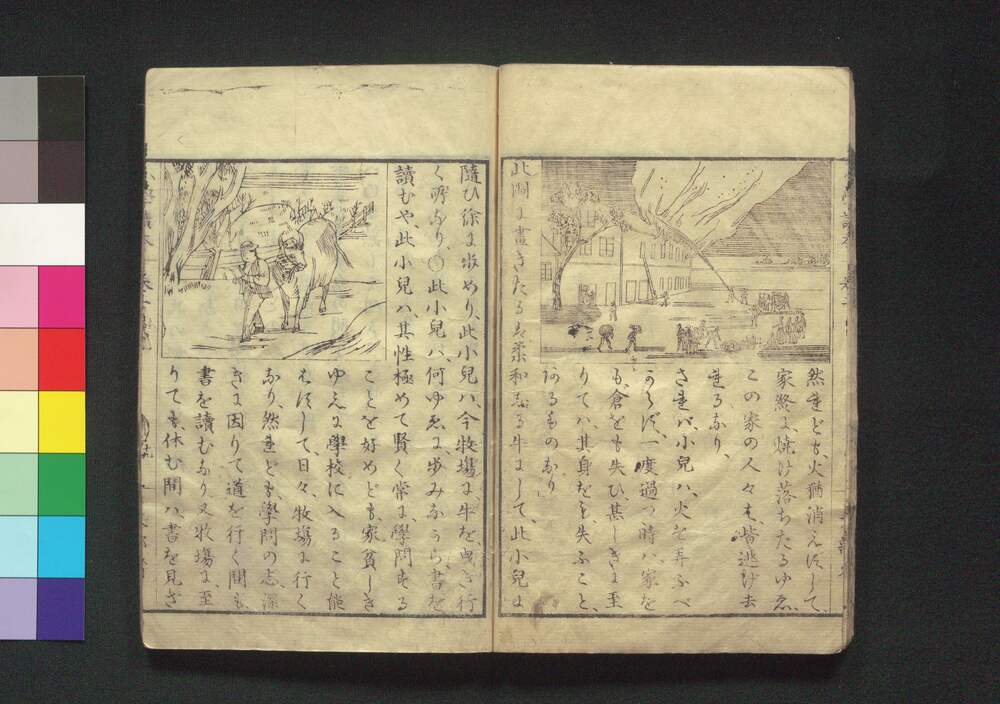 然れども、火猶消えずして、
家終に焼け落ちたるゆゑ、
この家の人々も、皆逃げ去
れるなり、
されバ小兒ハ、火を弄ふべ
からず、一度過つ時ハ、家を
も、倉をも失ひ、甚しきに至
りてハ、其身をも、失ふこと、
あるものなり
此圖に畫きたるは柔和なる牛にして、此小兒に
隨ひ徐に歩めり、此小兒ハ、今牧塲に、牛を、曳き行
く所なり、○此小兒ハ、何ゆゑに、歩みながら、書を
讀むや、此小兒ハ其性極めて賢く常に學問する
ことを好めども、家貧しき
ゆゑに學校に入ること能
はずして、日々、牧塲に行く
なり、然れども、學問の志深
きに因りて道を行く間も
書を讀むなり又牧塲に、至
りても休む間ハ、書を見ざ